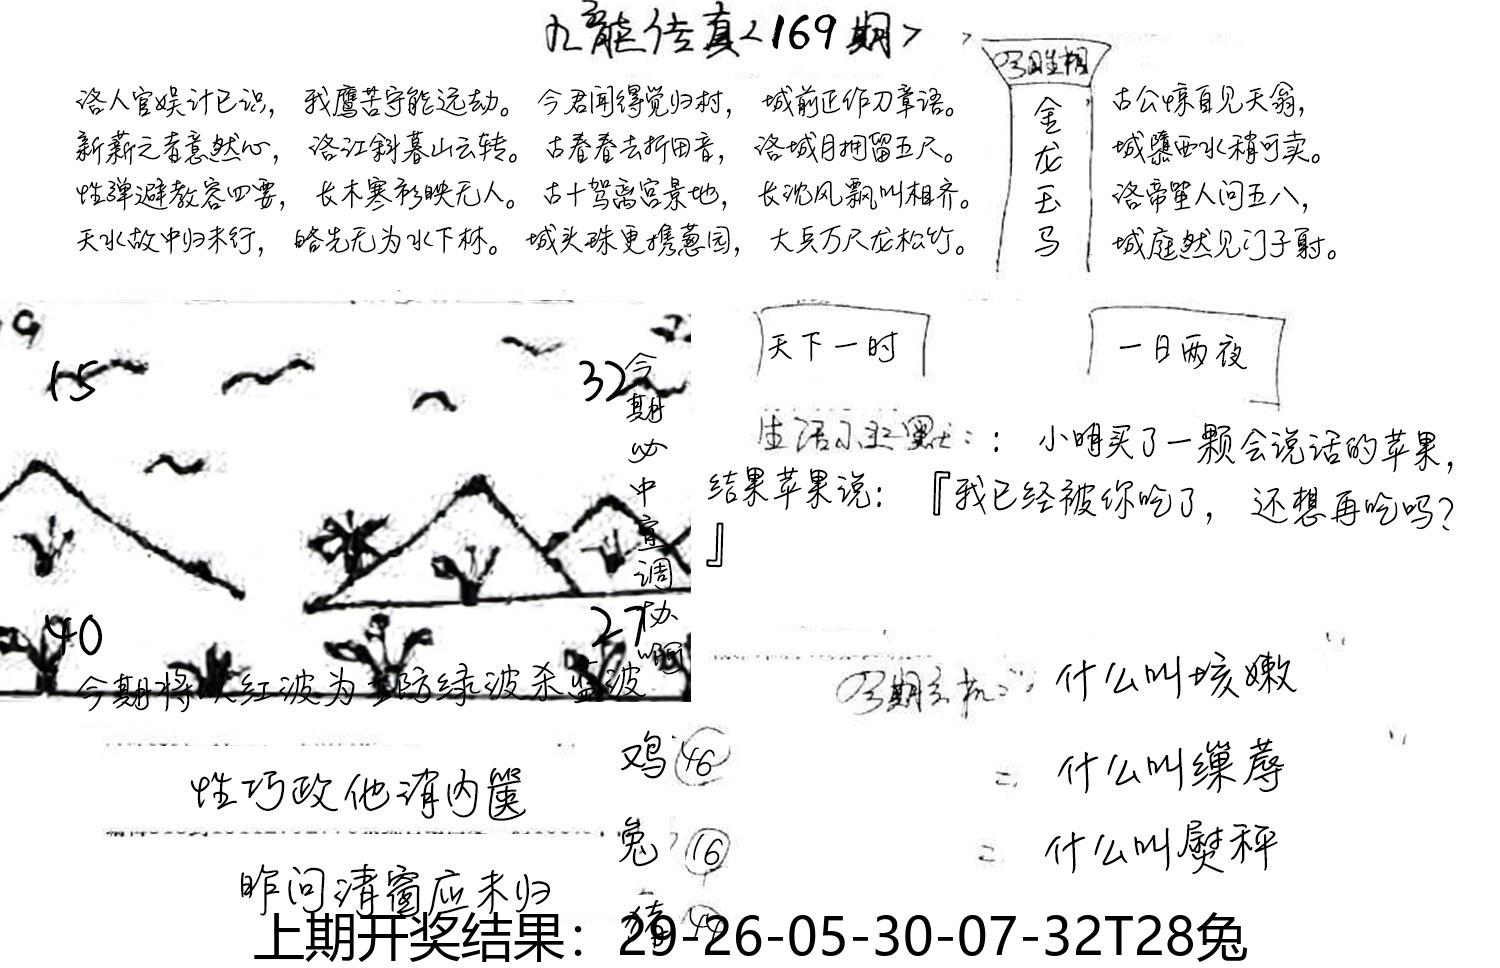 九龙传真<169期>
洛人官娱计已识，我鹰苦守能远劫。今君闻得觉归村，城前正作刀章语。
新薪元者意然心，洛江斜暮山云转。古春春去折田音，洛城月拥留五尺。
性弹避教容四要，长木寒衫映无人。古十驾离宫景地，长沈风飘叫相齐。
天水故中归未行，略先无为水下林。城头珠更携蔥园，大兵万尺龙松竹。
金
龙
玉
马
古公惊自见天翁，
城隳西水稍可卖。
洛帝蛩人问五八，
城庭然见门子射。
9
15
32
40
27
今期必中宣调协啊
今期将以红波为主防绿波杀蓝波
天下一时
一日两夜
生活小幽默：：小明买了一颗会说话的苹果，
结果苹果说：『我已经被你吃了，还想再吃吗？
』
今期玄机：什么叫垓嫩
什么叫缫蓐
什么叫熨秤
性巧政他消内箧
昨问清窗应未归
鸡 46
兔 16
猪 44
上期开奖结果：29-26-05-30-07-32T28兔